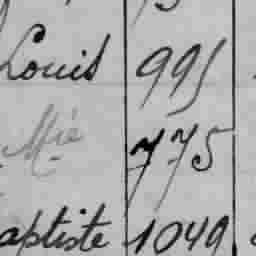 Louis 995
Mie 775
aptiste 1049